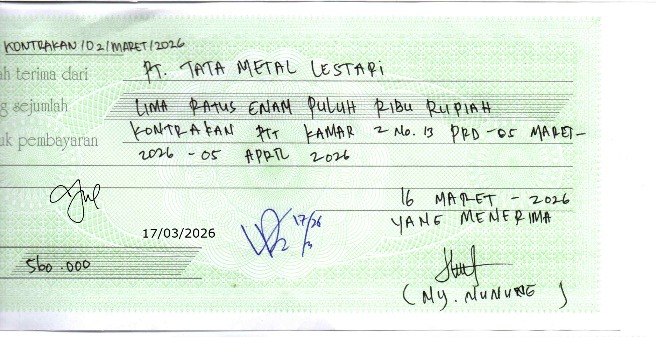 KONTRAKAN/02/MARET/2026
ah terima dari PT. TATA METAL LESTARI
g sejumlah LIMA RATUS ENAM PULUH RIBU RUPIAH
uk pembayaran KONTRAKAN PTT KAMAR 2 No. 13 PRD -05 MARET-
2026 - 05 APRIL 2026
16 MARET - 2026
YANG MENERIMA
17/03/2026
17/26
/3
560.000
(NY. NUNUNG)